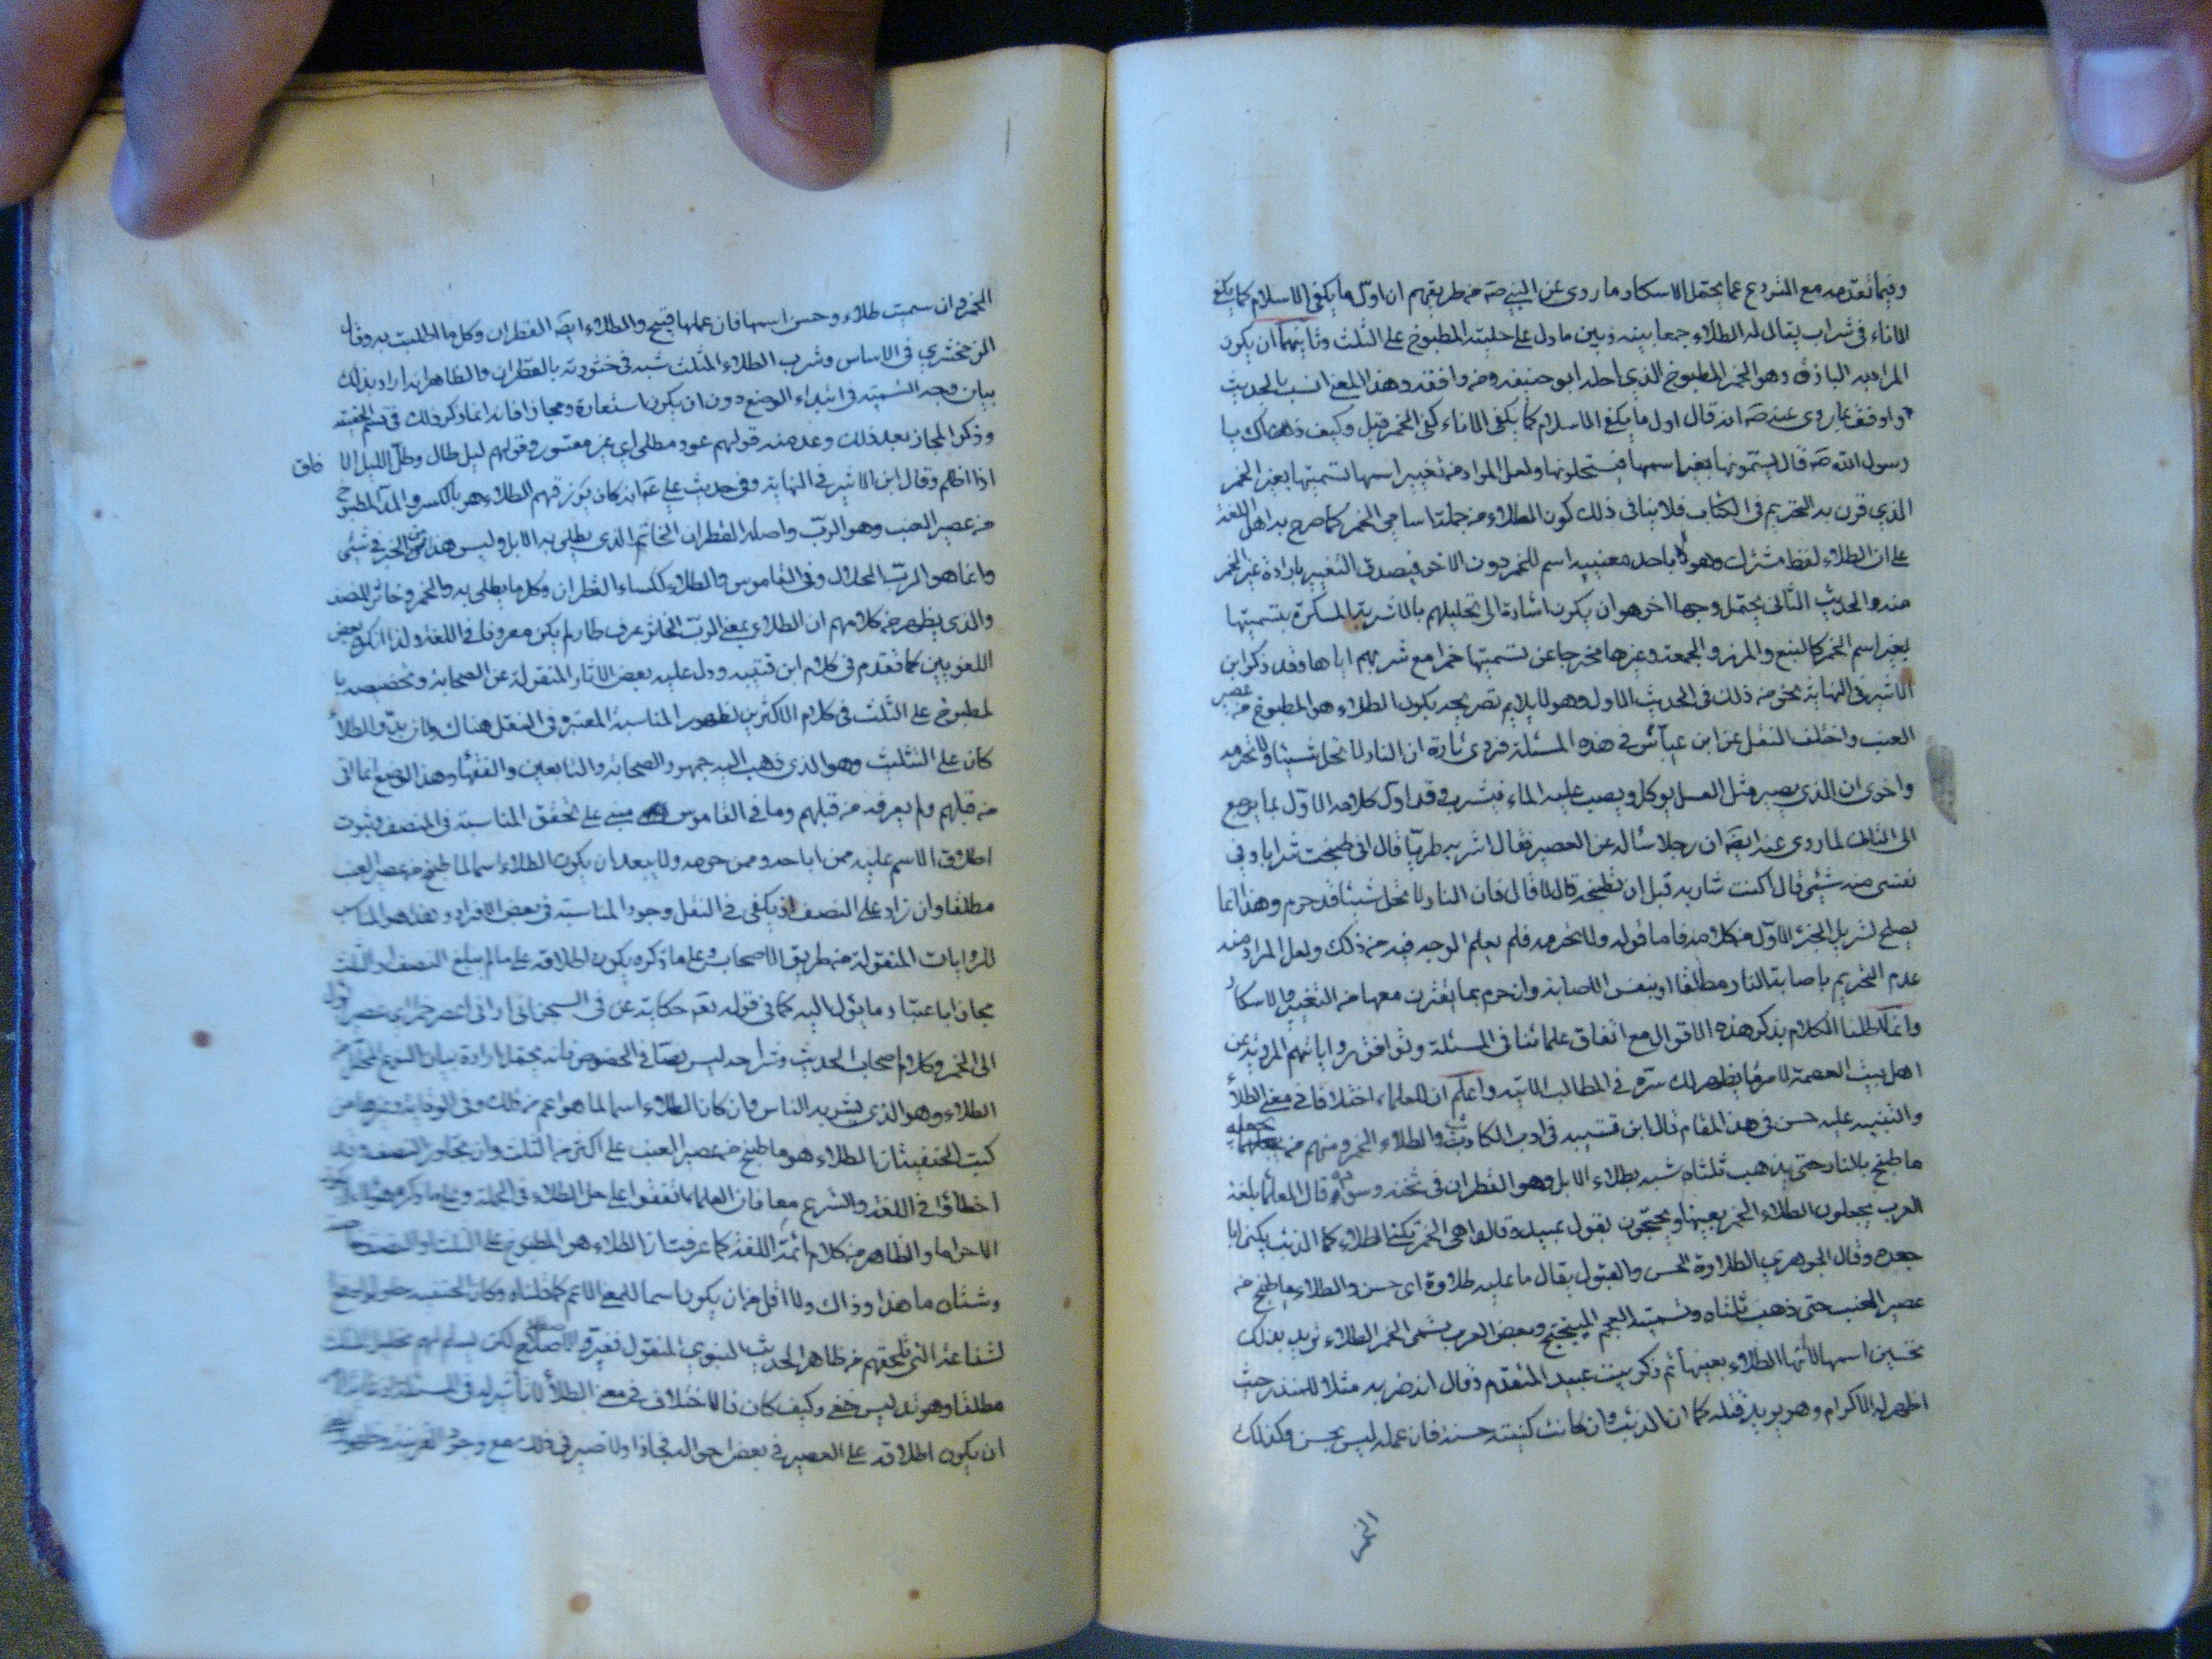 وفيما تقدمه مع الشروع عما يحتمل الاسكار ما روى عن النبي صه من طريقهم ان اول ما يكفى الاسلام كما يكفى
الاناء فى شراب يقال له الطلاء جمعا بينه وبين ما دل على حلية المطبوخ على الثلث وثانيهما ان يكون
المراد به الباذق وهو الخمر المطبوخ الذى احله ابو حنيفه ومن وافقه وهذا المعنى انسب بالحديث
واوفق بما روى عنه صه انه قال اول ما يكفى الاسلام كما يكفى الاناء كفى الخمر قيل وكيف ذاك يا
رسول الله صه قال يسمونها بغير اسمها فيستحلونها ولعل المراد من تغيير اسمها تسميتها بغير الخمر
الذى قرن به التحريم فى الكتاب فلا ينافى ذلك كون الطلاء من جملة اسامى الخمر كما صرح به اهل اللغة
على ان الطلاء لفظ مشترك وهو باحد معنييه اسم للخمر دون الاخر فيصدق التغيير بارادة غير الخمر
منه والحديث الثانى يحتمل وجها اخر هو ان يكون اشارة الى تحليلهم بالاشربة المسكرة بتسميتها
بغير اسم الخمر كالبتع والمزر والجعة وغيرها مخرجا عن تسميتها خمرا مع شربهم اياها وقد ذكر ابن
الاثير فى النهاية نحو من ذلك فى الحديث الاول وهو لا يلايم تصريحه بكون الطلاء هو المطبوخ من عصير
العنب واختلف النقل عن ابن عباس فى هذه المسئلة فروى تارة ان النار لا تحل شيئا ولا تحرمه
واخرى ان الذى يصير مثل العسل يوكل ويصب عليه الماء فيشرب وقد اول كلامه الاول بما يرجع
الى الثانى لما روى عنه ايضه ان رجلا سأله عن العصير فقال اشربه طريا قال انى طبخت شرابا وفى
نفسى منه شئ قال اكنت شاربه قبل ان تطبخه قال لا قال فان النار لا تحل شيئا قد حرم وهذا انما
يصلح لتنزيل الجزء الاول من كلامه فاما قوله ولا تحرمه فلم يعلم الوجه فيه من ذلك ولعل المراد منه
عدم التحريم باصابة النار مطلقا او بنفس الاصابة وان حرم بما يقترن معها من التغير والاسكار
وانما اطلنا الكلام بذكر هذه الاقوال مع اتفاق علمائنا فى المسئلة وتوافق رواياتهم المروية عن
اهل بيت العصمة لامر ما يظهر لك سره فى المطالب الاتية واعلم ان للعلماء اختلافا فى معنى الطلاء
والتنبيه عليه حسن فى هذا المقام قال ابن قتيبه فى ادب الكاتب والطلاء الخمر ومنهم من يجعله
ما طبخ بالنار حتى يذهب ثلثاه شبه بطلاء الابل وهو القطران فى ثخنه وسواده قال العلماء بلغة
العرب يجعلون الطلاء الخمر بعينها ويحتجون بقول عبيد وقالوا هى الخمر تكنى الطلاء كما الذئب يكنى ابا
جعده وقال الجوهرى الطلاوة الحسن والقبول يقال ما عليه طلاوة اى حسن والطلاء ما طبخ من
عصير العنب حتى ذهب ثلثاه وتسميه العجم الميبختج وبعض العرب يسمى الخمر الطلاء تريد بذلك
تحسين اسمها لا انها الطلاء بعينها ثم ذكر بيت عبيد المتقدم وقال انه ضربه مثلا للمنذر حيث
اظهر له الاكرام وهو يريد قتله كما ان الذئب وان كانت كنيته حسنة فان عمله ليس بحسن وكذلك
الخمر
الخمر وان سميت طلاء وحسن اسمها فان عملها قبيح والطلاء ايضه القطران وكل ما اطليت به وقال
الزمخشري فى الاساس وشرب الطلاء المثلث شبه فى خثورته بالقطران والظاهر انه اراد بذلك
بيان وجه التسمية فى ابتداء الوضع دون ان يكون استعارة ومجازا فانه انما ذكر ذلك فى قسم الحقيقة
وذكر المجاز بعد ذلك وعد منه قولهم عود مطلى اي غير مقشور وقولهم ليل طال وطلى الليل الافاق
اذا اظلم وقال ابن الاثير فى النهاية وفى حديث على عه انه كان يرزقهم الطلاء هو بالكسر والمد المطبوخ
من عصير العنب وهو الرب واصله القطران الخاثر الذى يطلى به الابل وليس هذا من الخمر فى شئ
وانما هو الرب الحلال وفى القاموس والطلاء ككساء القطران وكل ما يطلى به والخمر وخاثر المنصف
والذى يظهر من كلامهم ان الطلاء بمعنى الرب الحلال عرف طار لم يكن معروفا فى اللغة ولذا انكره بعض
اللغويين كما تقدم فى كلام ابن قتيبه ودل عليه بعض الاثار المنقولة عن الصحابة وتخصيصه با
لمطبوخ على الثلث فى كلام الاكثرين لظهور المناسبة المعتبرة فى النقل هناك
كان على التثليث وهو الذى ذهب اليه جمهور الصحابة والتابعين والفقهاء وهذا الوضع انما اتى
من قبلهم ولم يعرفه من قبلهم وما فى القاموس مبنى على تحقق المناسبة فى المنصف وثبوت
اطلاق الاسم عليه ممن اباحه وممن حرمه ولا يبعد ان يكون الطلاء اسما لما طبخ من عصير العنب
مطلقا وان زاد على النصف اذ يكفى فى النقل وجود المناسبة فى بعض الافراد وهذا هو المناسب
للروايات المنقولة من طريق الاصحاب وعلى ما ذكره يكون اطلاقه على ما لم يبلغ النصف او الثلث
مجازا باعتبار ما يؤل اليه كما فى قوله تعه حكاية عن فى السجن انى ارانى اعصر خمرا اى عصيرا يؤل
الى الخمر وكلام اصحاب الحديث وشراحه ليس نصا فى الخصوص فانه يحتمل ارادة بيان النوع المحلل من
الطلاء وهو الذى يشربه الناس وان كان الطلاء اسما لما هو اعم من ذلك وفى الوقاية وغيرها من
كتب الحنفية ان الطلاء هو ما طبخ من عصير العنب على اكثر من الثلث وان تجاوز النصف وقد
اخطأوا فى اللغة والشرع معا فان العلماء اتفقوا على حل الطلاء فى الجملة
الا حراما والظاهر من كلام ائمة اللغة كما عرفت ان الطلاء هو المطبوخ على الثلث او النصف
وشتان ما هذا وذاك ولا اقل من ان يكون اسما للمعنى الاعم كما قلناه
لشناعة التى تلحقهم من ظاهر الحديث النبوي المنقول فغيروا الاصطلاح لكن ليسلم لهم تحليل المثلث
مطلقا وهو تدليس خفى وكيف كان فالاختلاف فى معنى الطلاء لا تأثير له فى المسئلة
ان يكون اطلاقه على العصير فى بعض احواله مجازا ولا ضير فى ذلك مع وجود القرينة